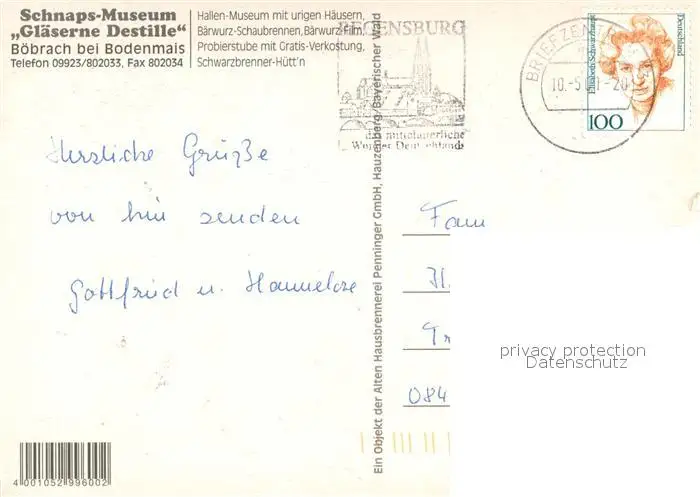 Schnaps-Museum
„Gläserne Destille“
Böbrach bei Bodenmais
Telefon 09923/802033, Fax 802034
Hallen-Museum mit urigen Häusern,
Bärwurz-Schaubrennen, Bärwurz-Film,
Probierstube mit Gratis-Verkostung,
Schwarzbrenner-Hütt'n
REGENSBURG
das mittelalterliche
Wunder Deutschlands
BRIEFZEN
10.-5. 1-20
Elisabeth Schwarzhaupt
Deutschland
100
Herzliche Grüße
von hier senden
Gottfried u. Hannelore
Ein Objekt der Alten Hausbrennerei Penninger GmbH, Hauzenberg/Bayerischer Wald
Fam
H.
084
privacy protection
Datenschutz
4 001052 996002